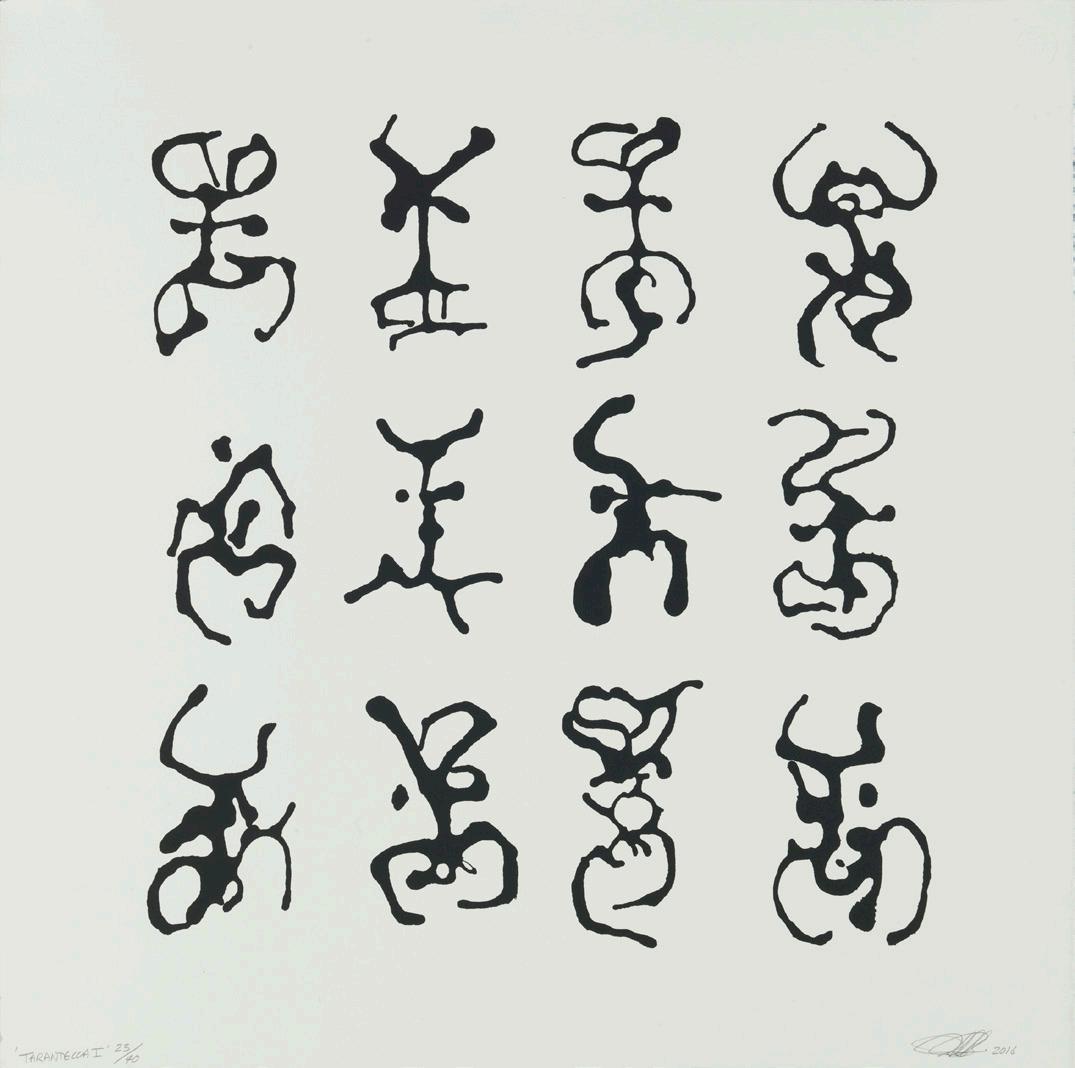 'TARANTELLA I' 23/40
2016